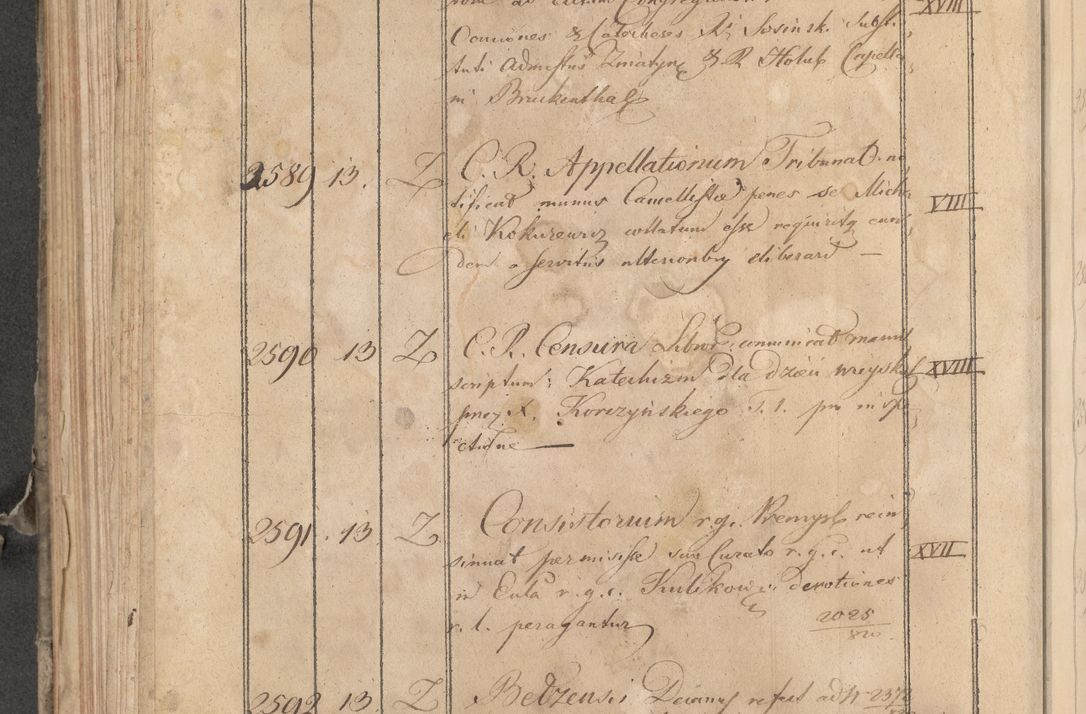 XVIII
Conciones & Catecheses Rr Sosinsk. Substi
tuti Admstrus Zniatyn & R Holub Capella
ni Bruckenthal
2589 13. Z C. R. Appellationum Tribunal. no
tificat munus Cancellistae penes se Mich
eli Kokurewicz collatum esse requiritq eun
dem a servitus ulterioribq eliberari — VIII
2590 13 Z C. R. Censura Libror. communicat manu
scriptum: Katechizm dla dzieci wieysk XVIII
przez X. Korczyńskiego T. 1. pro inspe
ctione —
2591. 13 Z Consistorium r.g. Premysl. rein
sinuat permisisse suo Curato r.g.c. ut XVII
in Ecla r.g.c. Kulikow. devotiones
r. l. peragantur 2025
820
2592 13. Z Bełzensis Decanus refert ad N 2372